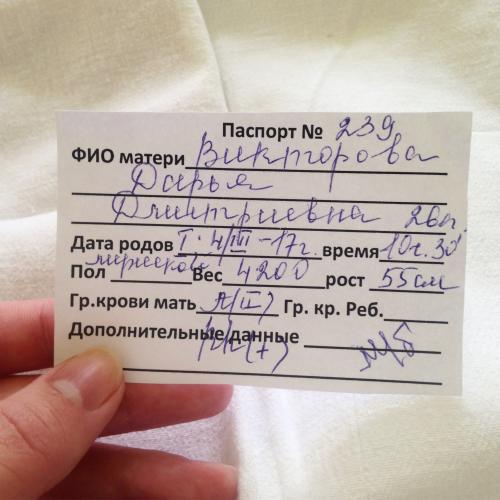 Паспорт № 239
ФИО матери Викторова
Дарья
Дмитриевна 26л.
Дата родов I. 4/III-17г. время 10ч.30'
Пол мужской Вес 4200 рост 55см
Гр.крови мать A(II) Гр. кр. Реб.
Дополнительные данные
Rh(+)